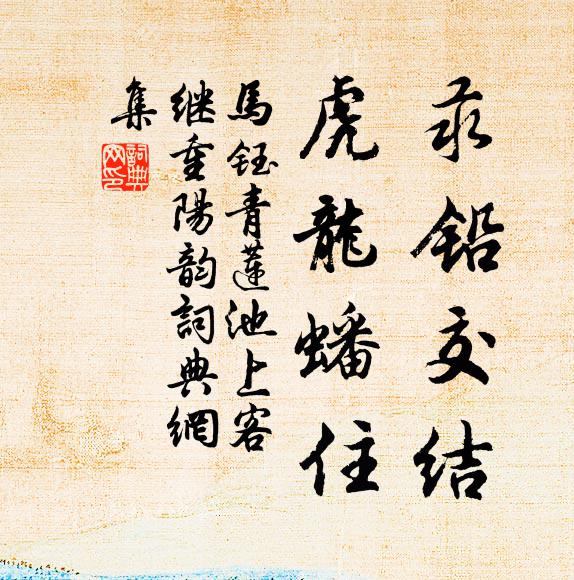 汞鉛交結
虎龍蟠住
馬鈺青蓮池上客
继重陽韵詞典網
集
詞典網印